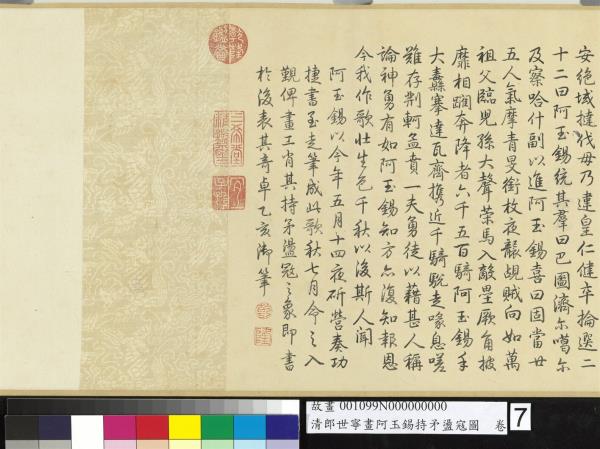 安絕域撻伐毋乃違皇仁健卒掄選二
十二曰阿玉錫統其羣曰巴圖濟尔噶尔
及察哈什副以進阿玉錫喜曰固當廿
五人氣摩青旻銜枚夜襲覘賊向如萬
祖父臨兒孫大聲策馬入敵壘厥角披
靡相躪奔降者六千五百騎阿玉錫手
大纛搴達瓦齊攜近千騎駾走喙息嗟
難存荊軻孟賁一夫勇徒以藉甚人稱
論神勇有如阿玉錫知方亦復知報恩
今我作歌壯生色千秋以後斯人聞
阿玉錫以今年五月十四夜斫營奏功
捷書至走筆成此歌秋七月命之入
覲俾畫工肖其持矛盪寇之象即書
於後表其奇卓乙亥御筆
乾隆
乾隆鑑賞
三希堂精鑑璽
宜子孫
故畫 001099N000000000
清郎世寧畫阿玉錫持矛盪寇圖 卷
7